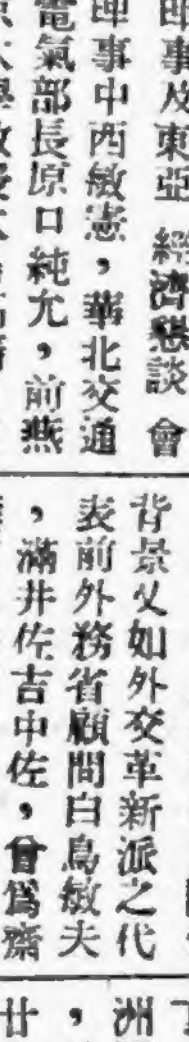 理事及東亞經濟懇談會
理事中西敏憲，華北交通
電氣部長原口純允，前燕
背景又如外交革新派之代
表前外務省顧問白鳥敏夫
，滿井佐吉中佐，曾爲齋
洲
，
廿